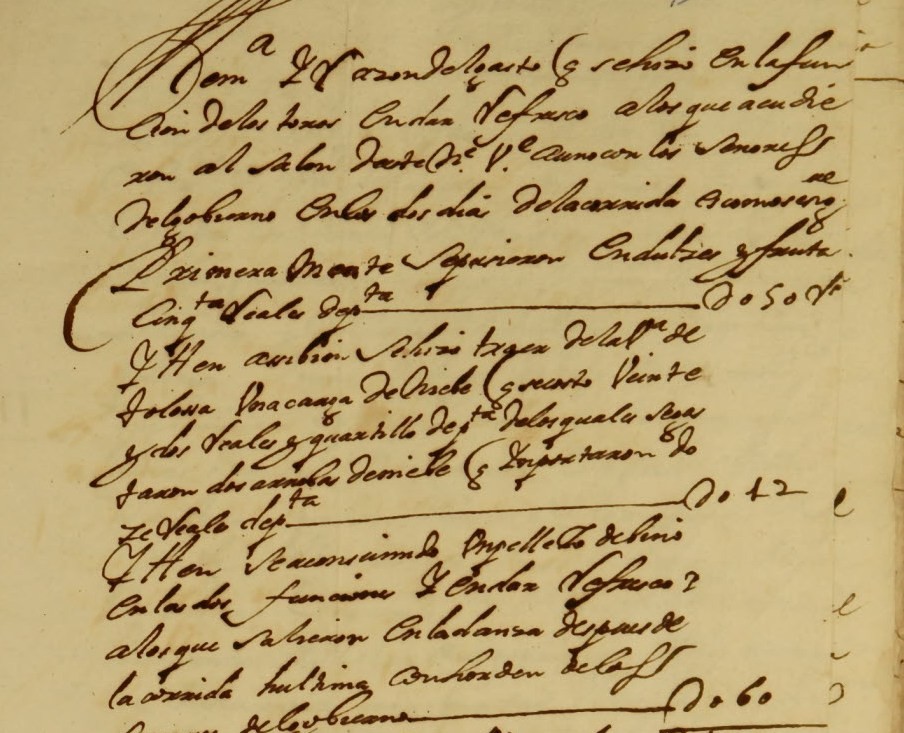 Memᵃ y Razon del gasto q se hizo en la fun
cion de los toros en dar Refresco a los que acudie
ron al salon de este Nᵉ. Vᵉ aunocon los Senores SS
del gobierno en los dos dias de la corrida es como sigᵗᵉ
Primera Mente se pusieron en dulzes y fruta
cinqᵗᵃ Reales de pᵗᵃ Do 50 Rˢ
Ytten arribien se hizo traer de la Vᵃ de
tolossa Una carga de Niebe q se costo Veinte
y dos Reales y quartillo de pᵗᵃ de los quales se gas
taron dos arrobas de niebe q Ynportaron do
ze Reales de pᵗᵃ Do 12
Ytten se a consumido Un pellejo de bino
en las dos funciones y en dar Refresco
a los que salieron en la danza despues de
la corrida hultima con horden de los SS
del gobierno Do 60